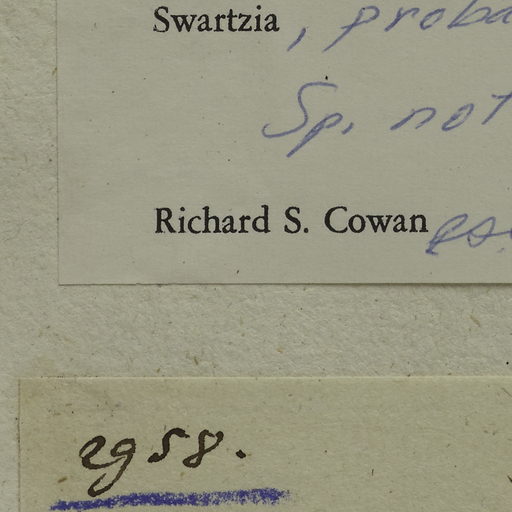 Swartzia, proba
Sp. not
Richard S. Cowan
2958.